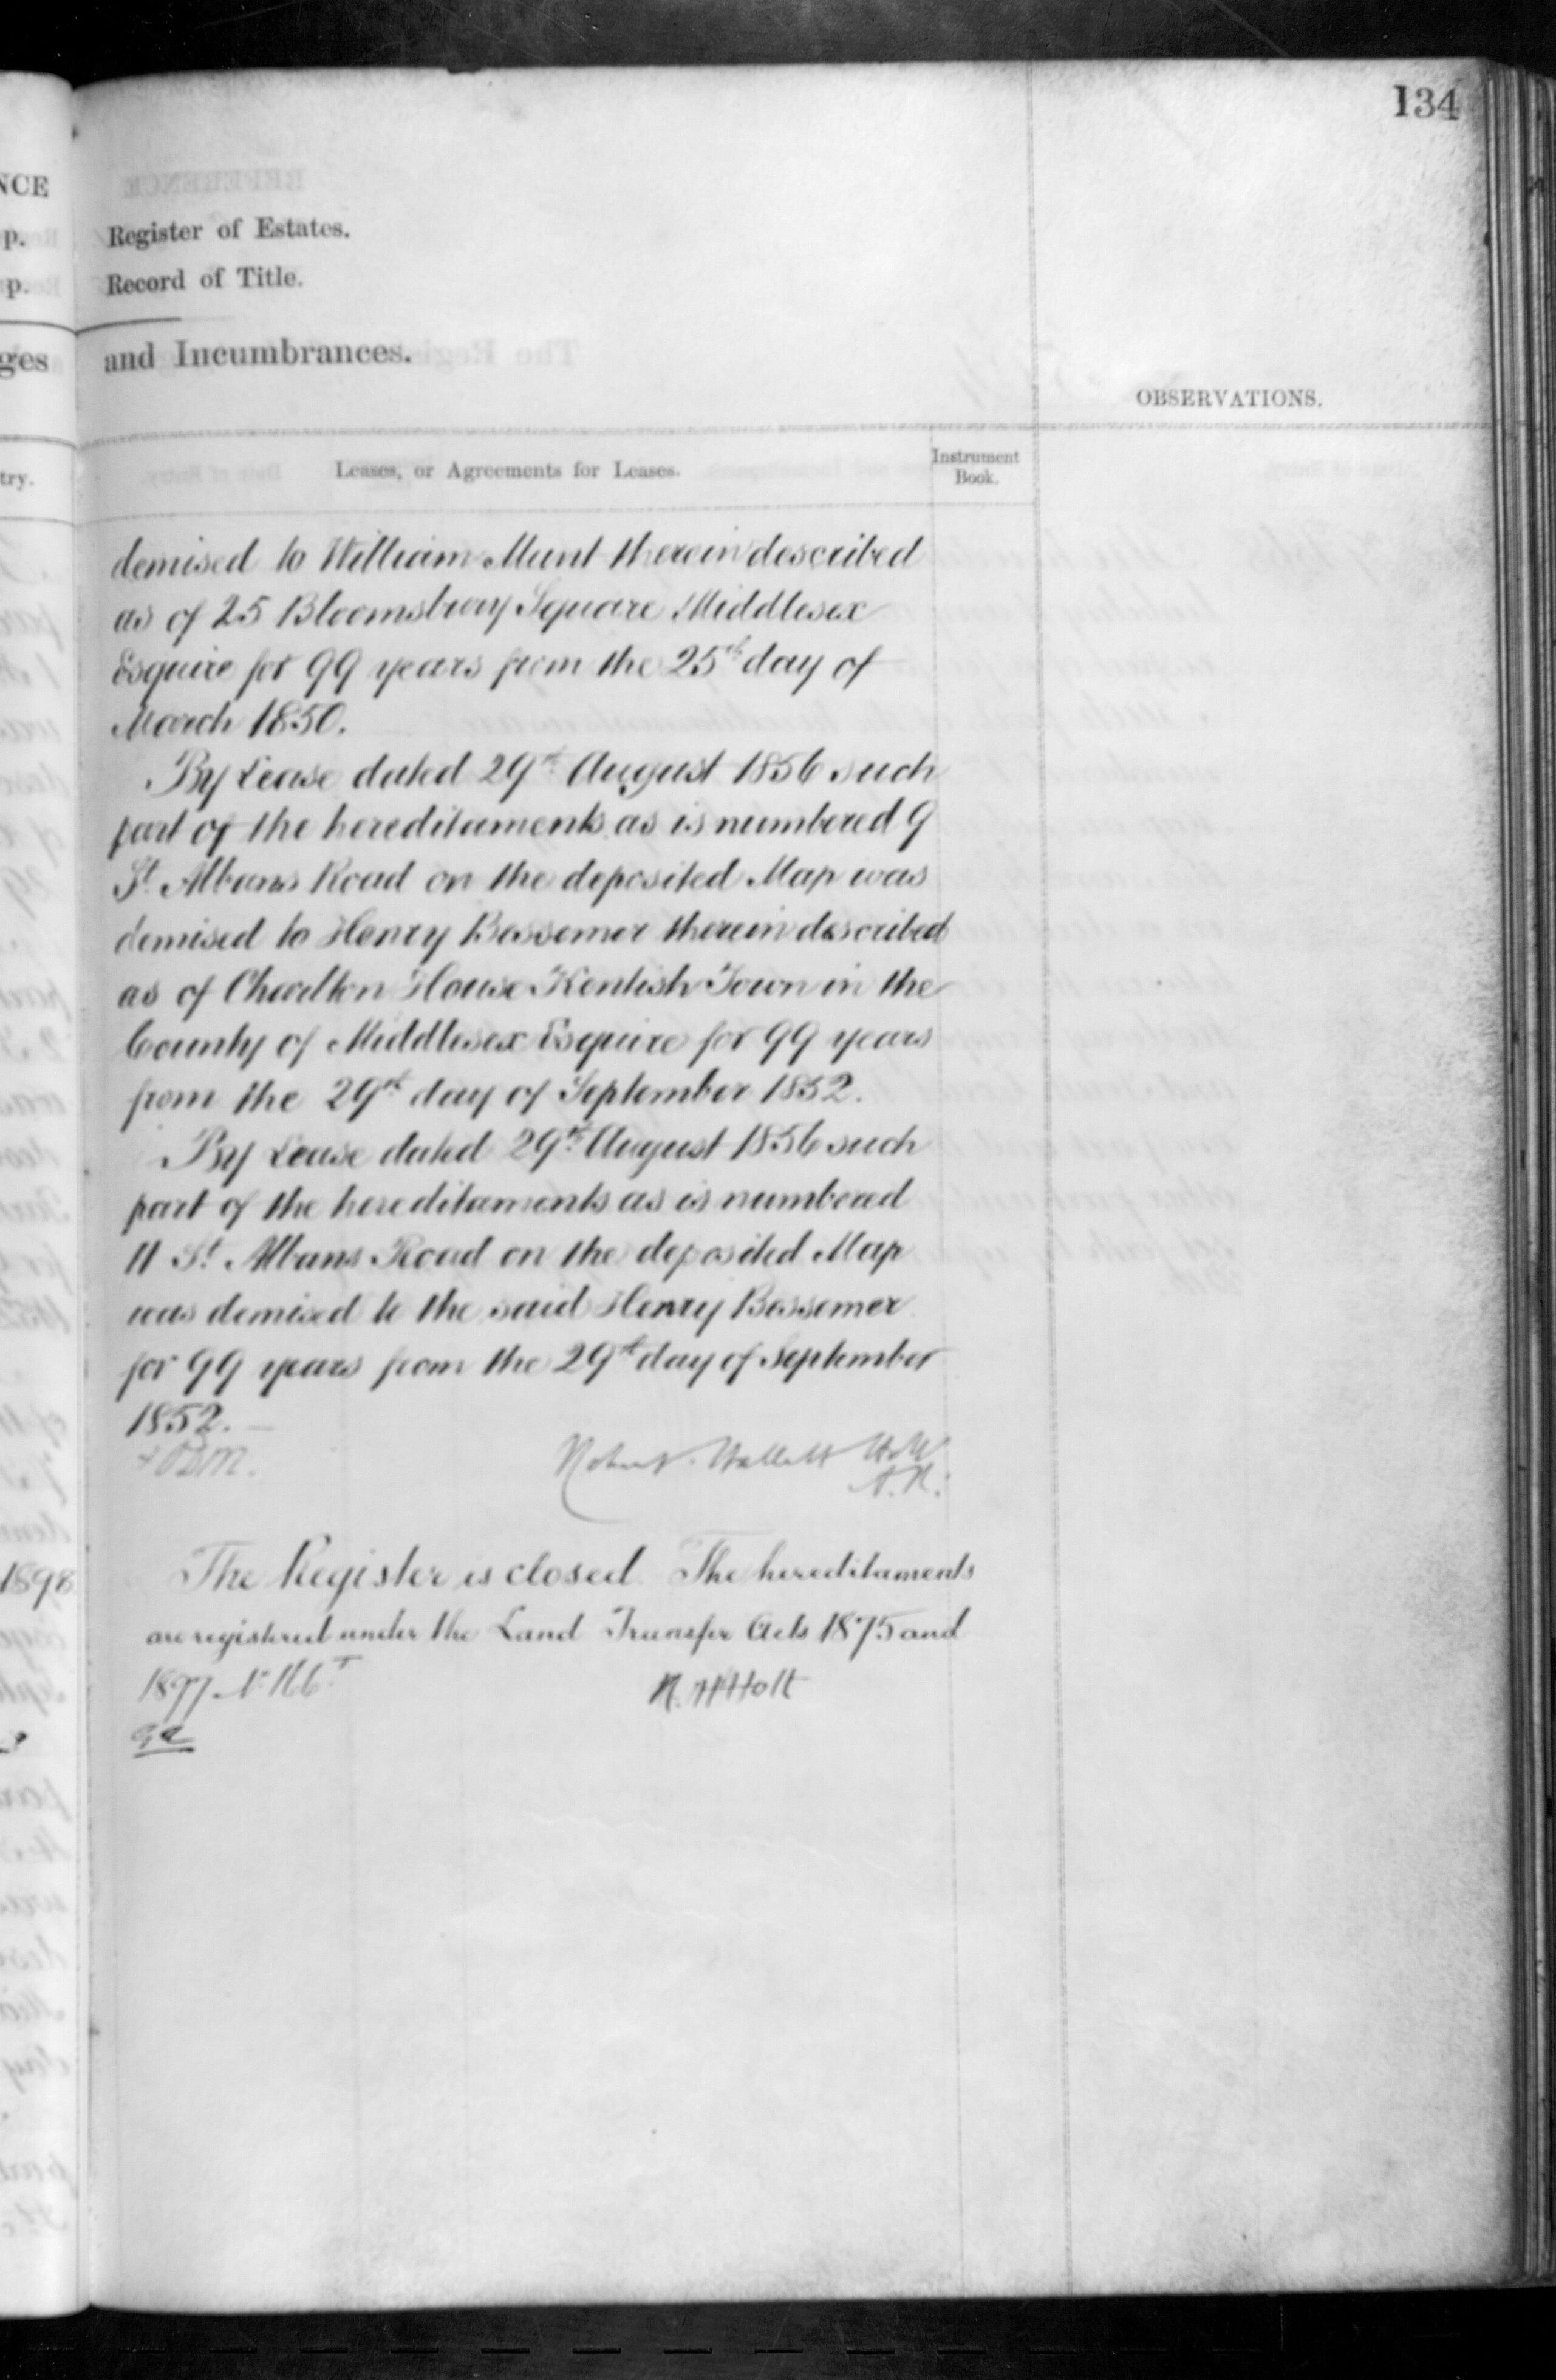 134
NCE
p.
p.
ges
try.
1898
Register of Estates.
Record of Title.
and Incumbrances.
OBSERVATIONS.
Leases, or Agreements for Leases.
Instrument
Book.
demised to William Munt therein described
as of 25 Bloomsbury Square Middlesex
Esquire for 99 years from the 25th day of
March 1850.
By Lease dated 29th August 1856 such
part of the hereditaments as is numbered 9
St. Albans Road on the deposited Map was
demised to Henry Bessemer therein described
as of Charlton House Kentish Town in the
County of Middlesex Esquire for 99 years
from the 29th day of September 1852.
By Lease dated 29th August 1856 such
part of the hereditaments as is numbered
11 St. Albans Road on the deposited Map
was demised to the said Henry Bessemer
for 99 years from the 29th day of September
1852.
Robert Hallett Holt
A.R.
The Register is closed The hereditaments
are registered under the Land Transfer Acts 1875 and
1897
R. H Holt